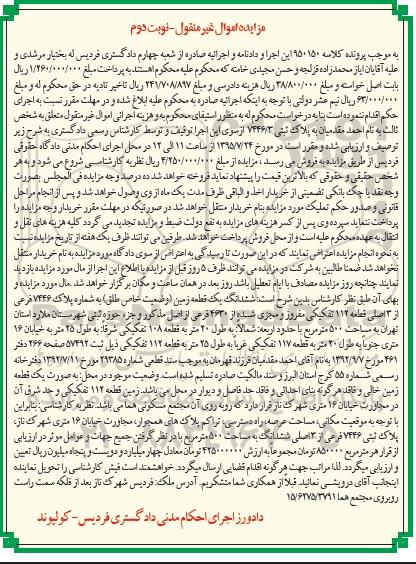 مزایده اموال غیر منقول - نوبت دوم
به موجب پرونده کلاسه ۹۵۰۱۵۰ این اجرا و دادنامه و اجرائیه صادره از شعبه چهارم دادگستری فردیس له بختیار مرشدی و
علیه آقایان ایاز محمدزاده قزلجه و حسن مجیدی خامنه که محکوم علیه محکوم هستند به پرداخت مبلغ ۱/۲۶۰/۰۰۰/۰۰۰ ریال
بابت اصل خواسته و مبلغ ۳۸/۸۰۰/۰۰۰ ریال هزینه دادرسی و مبلغ ۲۴۱/۷۰۸/۸۹۷ ریال تاخیر تادیه در حق محکوم له و مبلغ
۶۳/۰۰۰/۰۰۰ ریال نیم عشر دولتی با توجه به اینکه اجرائیه صادره به محکوم علیه ابلاغ شده و در مهلت مقرر نسبت به اجرای
حکم اقدام ننموده است بنا به درخواست محکوم له و به منظور استیفای محکوم به و هزینه اجرائی اموال غیر منقول متعلق به شخص
ثالث به نام احمد مقدمیان به پلاک ثبتی ۷۴۴۶/۳ از سوی این اجرا توقیف و توسط کارشناس رسمی دادگستری به شرح زیر
توصیف و ارزیابی شده و مقرر است در مورخ ۱۳۹۵/۷/۲۴ از ساعت ۱۱ الی ۱۲ در محل اجرای احکام مدنی دادگاه حقوقی
فردیس از طریق مزایده به فروش می رسد، مزایده از مبلغ ۴/۲۵۰/۰۰۰/۰۰۰ ریال نظریه کارشناسی شروع می شود و به هر
شخص حقیقی و حقوقی که بالاترین قیمت را پیشنهاد نماید فروخته خواهد شد ده درصد وجه مزایده فی المجلس بصورت
وجه نقد یا چک بانکی تضمینی از خریدار اخذ و الباقی ظرف مدت یک ماه از وی وصول خواهد شد و پس از انجام مراحل
قانونی و صدور حکم تملیک مورد مزایده بنام خریدار منتقل خواهد شد در صورتیکه در مهلت مقرر خریدار وجه مزایده را
پرداخت ننماید سپرده وی پس از کسر هزینه های مزایده به نفع دولت ضبط و مزایده تجدید می گردد کلیه هزینه های نقل و
انتقال به عهده محکوم علیه است و از محل فروش پرداخت خواهد شد. طرفین می توانند ظرف یک هفته از تاریخ مزایده نسبت
به نحوه انجام مزایده اعتراض نمایند که در این صورت تا رسیدگی به اعتراض از سوی دادگاه مورد مزایده به نام خریدار منتقل
نخواهد شد ضمنا طالبین به شرکت در مزایده می توانند ظرف ۵ روز قبل از مزایده با اطلاع این اجرا از مال مورد مزایده بازدید
نمایند چنانچه روز مزایده مصادف با ایام تعطیل باشد روز بعد در همان ساعت و مکان برگزار خواهد شد. مال مورد مزایده و
بهای آن طبق نظر کارشناس بدین شرح است: ششدانگ یک قطعه زمین (وضعیت خاص طلق) به شماره پلاک ۷۴۴۶ فرعی
از ۳ اصلی قطعه ۱۱۲ تفکیکی مفروز و مجزی شده از ۴۶۳۰ فرعی از اصلی مذکور و جزء حوزه ثبتی شهرستان ملارد استان
تهران به مساحت ۵۰۰ متر مربع با حدود اربعه: شمالا: به طول ۲۰ متر به قطعه ۱۰۸ تفکیکی شرقا: به طول ۲۵ متر به خیابان ۱۶
متری جنوبا به طول ۲۰ متر به قطعه ۱۱۷ تفکیکی غربا به طول ۲۵ متر به قطعه ۱۱۲ تفکیکی ذیل ثبت ۵۷۴۹۲ صفحه ۲۶۶ دفتر
۴۶۱ مورخ ۱۳۹۲/۹/۷ به نام آقای احمد مقدمیان فرزند قهرمان به موجب سند قطعی شماره ۲۹۳۸۵ مورخ ۱۳۹۲/۷/۱ دفترخانه
رسمی شماره ۵۵ کرج استان البرز و سند مالکیت صادره تسلیم شده است. وضعیت موجود در محل: به صورت یک قطعه
زمین خالی و فاقد هرگونه بنای احداثی و فاقد حد فاصل و دیوار در محل می باشد. زمین قطعه ۱۱۲ تفکیکی و حد شرق آن
در مجاورت خیابان ۱۶ متری شهرک ناز قرار دارد که روبه روی آن مجتمع مسکونی هما می باشد. نظریه کارشناسی: بنابراین
با توجه به موقعیت مکانی، مساحت عرصه، راه دسترسی، تراکم پلاک های همجوار، مجاورت خیابان ۱۶ متری شهرک ناز،
پلاک ثبتی ۷۴۴۶ فرعی از ۳ اصلی ششدانگ به مساحت ۵۰۰ متر مربع با در نظر گرفتن جمیع جهات و عوامل موثر در ارزیابی
از قرار هر متر مربع ۸۵۰۰۰۰ تومان مجموعا به ارزش ۴۲۵۰۰۰۰۰۰ تومان معادل چهار میلیارد و دویست و پنجاه میلیون ریال تعیین
و ارزیابی میگردد. لذا مراتب جهت هرگونه اقدام قضایی ارسال میگردد. خواهشمند است فیش کارشناسی را تحویل نماینده
اینجانب آقای درویشی نمائید. قبلا از همکاری شما متشکریم. آدرس ملک: فردیس شهرک ناز بعد از فلکه سمت راست
روبروی مجتمع هما ۱۵/۶۲۷۵/۳۷۹۱
دادورز اجرای احکام مدنی دادگستری فردیس - کولیوند